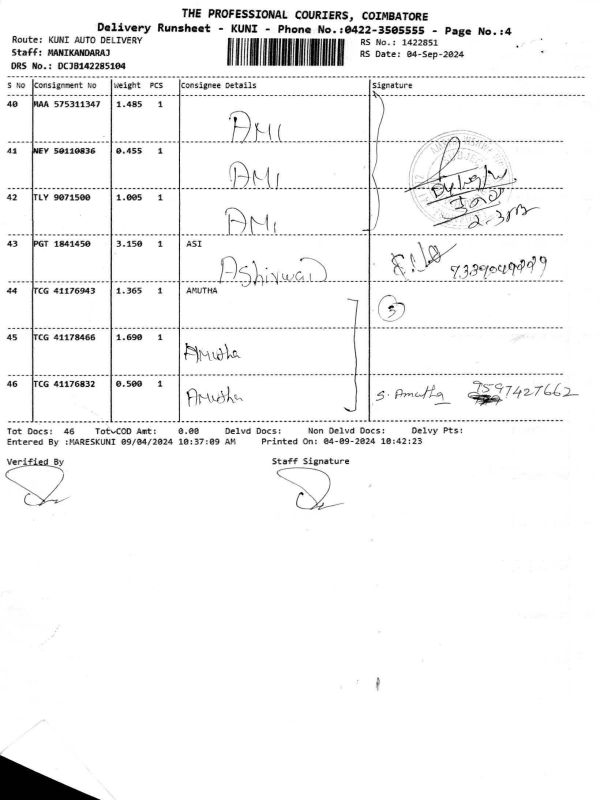 THE PROFESSIONAL COURIERS, COIMBATORE
Delivery Runsheet - KUNI - Phone No.:0422-3505555 - Page No.:4
Route: KUNI AUTO DELIVERY
RS No.: 1422851
Staff: MANIKANDARAJ
RS Date: 04-Sep-2024
DRS No.: DCJB142285104
S No Consignment No Weight PCS Consignee Details Signature
40 MAA 575311347 1.485 1
AMI
41 NEY 50110836 0.455 1
AMI
42 TLY 9071500 1.005 1
AMI
43 PGT 1841450 3.150 1 ASI
Ashirwad
44 TCG 41176943 1.365 1 AMUTHA
3
45 TCG 41178466 1.690 1
Amutha
46 TCG 41176832 0.500 1
Amutha S. Amutha 9597427662
Tot Docs: 46 Tot COD Amt: 0.00 Delvd Docs: Non Delvd Docs: Delvy Pts:
Entered By :MARESKUNI 09/04/2024 10:37:09 AM Printed On: 04-09-2024 10:42:23
Verified By Staff Signature